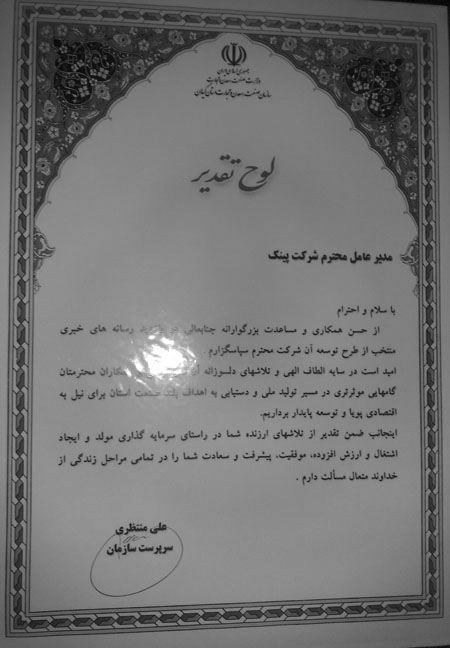 جمهوری اسلامی ایران
وزارت صنعت، معدن و تجارت
سازمان صنعت، معدن و تجارت استان گیلان
لوح تقدیر
مدیر عامل محترم شرکت پینک
با سلام و احترام
از حسن همکاری و مساعدت بزرگوارانه جنابعالی در رسانه های خبری
منتخب از طرح توسعه آن شرکت محترم سپاسگزارم
امید است در سایه الطاف الهی و تلاشهای دلسوزانه همکاران محترمتان
گامهایی موثرتری در مسیر تولید ملی و دستیابی به اهداف بلند صنعت استان برای نیل به
اقتصادی پویا و توسعه پایدار برداریم.
اینجانب ضمن تقدیر از تلاشهای ارزنده شما در راستای سرمایه گذاری مولد و ایجاد
اشتغال و ارزش افزوده، موفقیت، پیشرفت و سعادت شما را در تمامی مراحل زندگی از
خداوند متعال مسألت دارم .
علی منتظری
سرپرست سازمان